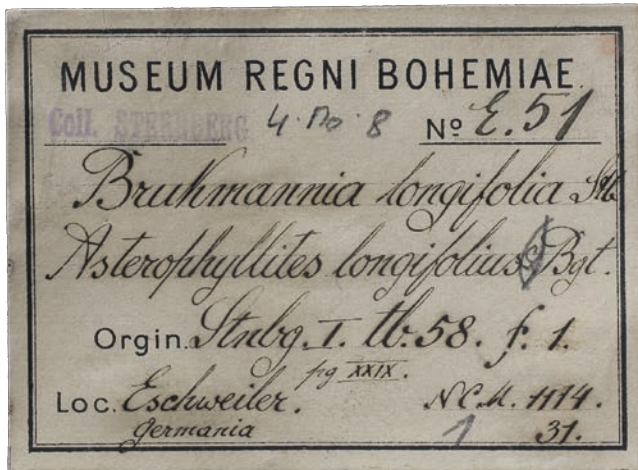 MUSEUM REGNI BOHEMIAE
Coll. STERNBERG 4. No. 8 No E.51
Brukmannia longifolia Stb
Asterophyllites longifolius Bgt.
Orgin. Stnbg. I. tb. 58. f. 1.
pg XXIX.
Loc. Eschweiler. N.C.M. 1114.
Germania 1 31.